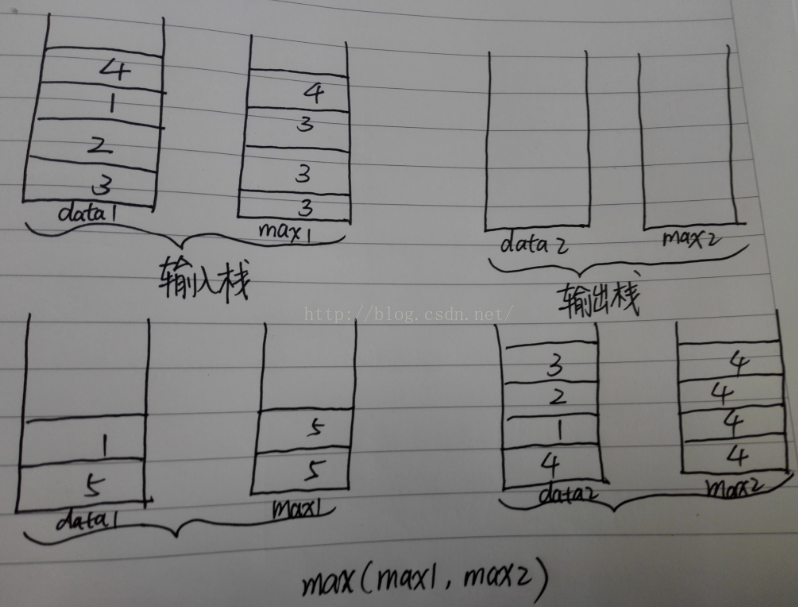 4
1
2
3
data1
4
3
3
3
max1
输入栈
data2
max2
输出栈
http://blog.csdn.net/
1
5
data1
5
5
max1
3
2
1
4
data2
4
4
4
4
max2
max(max1, max2)